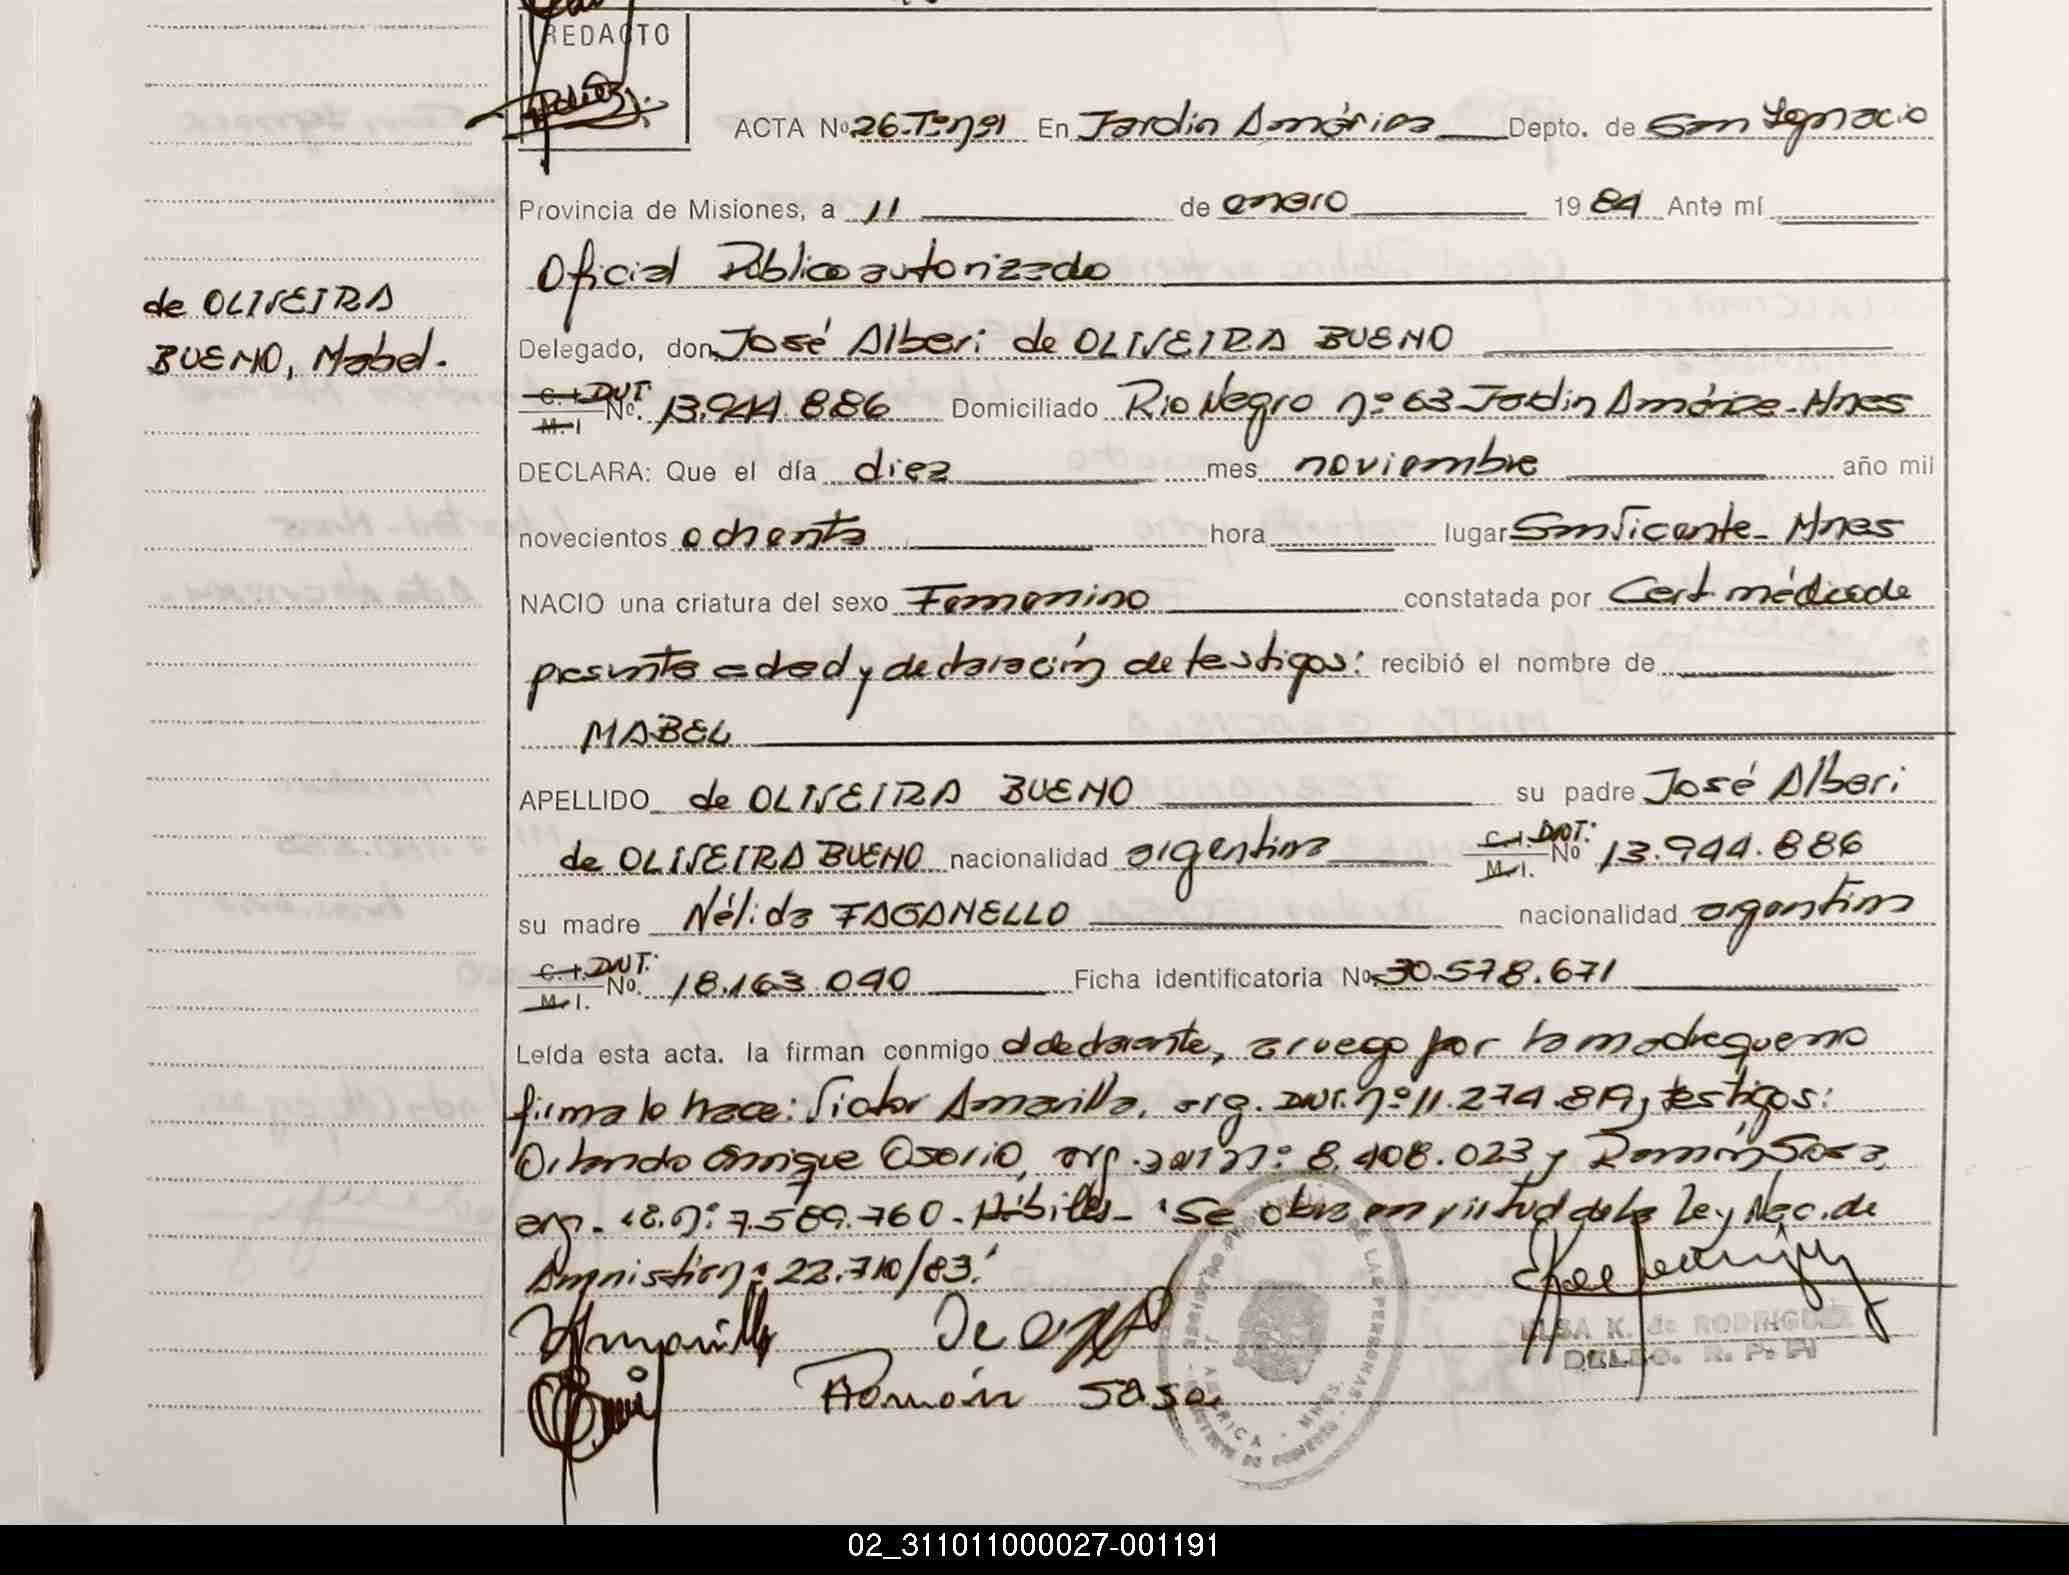 REDACTO
ACTA Nº 26. Tº nº 1 En Jardín América Depto. de San Ignacio
Provincia de Misiones, a 11 de enero 1984 Ante mí
Oficial Público autorizado
de OLIVEIRA
BUENO, Mabel.-
Delegado, don José Alberi de OLIVEIRA BUENO
C. I. DNI. M. I. No. 13.944.886 Domiciliado Rio Negro nº 63 Jardín América - Mnes
DECLARA: Que el día diez mes noviembre año mil
novecientos ochenta hora lugar San Vicente - Mnes
NACIO una criatura del sexo Femenino constatada por Cert. médico de
presunta edad y declaración de testigos: recibió el nombre de
MABEL
APELLIDO de OLIVEIRA BUENO su padre José Alberi
de OLIVEIRA BUENO nacionalidad argentina C. I. DNI: M. I. No 13.944.886
su madre Nélida FAGANELLO nacionalidad argentina
C. I. DNI: M. I. No. 18.163.040 Ficha identificatoria No. 30.578.671
Leída esta acta. la firman conmigo el declarante, a ruego por la madre que no
firma lo hace: Victor Amarilla, arg. DNI. nº 11.274.819, testigos:
Orlando Enrique Osorio, arg. DNI nº 8.408.023 y Ramón Sosa,
arg. nº 7.589.760. Hábiles - "Se obra en virtud de la Ley Nac. de
Amnistía nº 22.710/83."
Ramón Sosa
ELSA K. de RODRIGUEZ
DELEG. R. P. P.
02_311011000027-001191